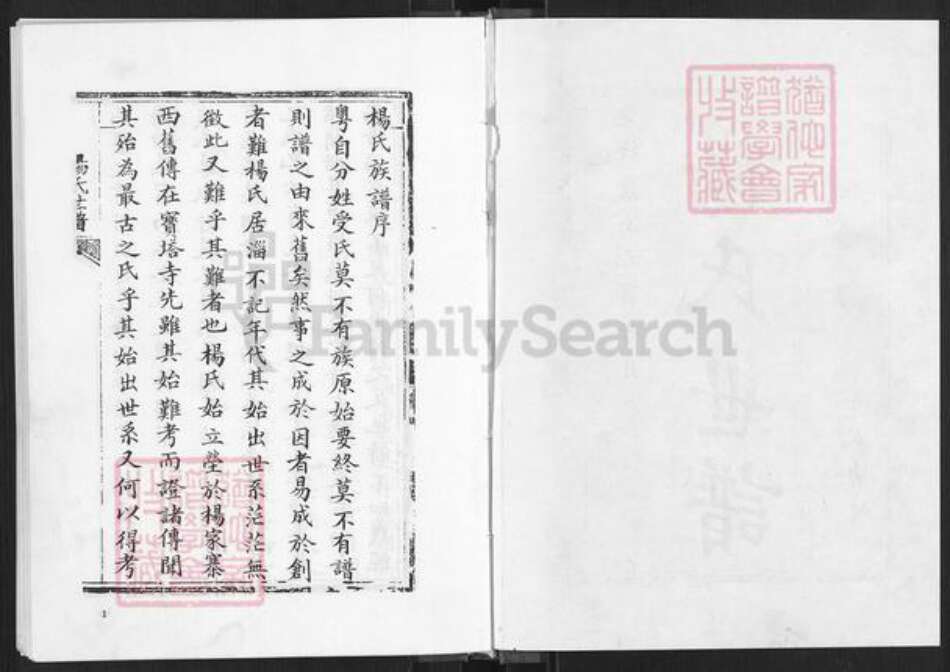 猶他家
譜學會
收藏
楊氏族譜序
粵自分姓受氏莫不有族原始要終莫不有譜
則譜之由來舊矣然事之成於因者易成於創
者難楊氏居淄不記年代其始出世系茫茫無
徵此又難乎其難者也楊氏始立塋於楊家寨
西舊傳在寶塔寺先雖其始難考而證諸傳聞
其殆為最古之氏乎其始出世系又何以得考
楊氏世譜
1
FamilySearch